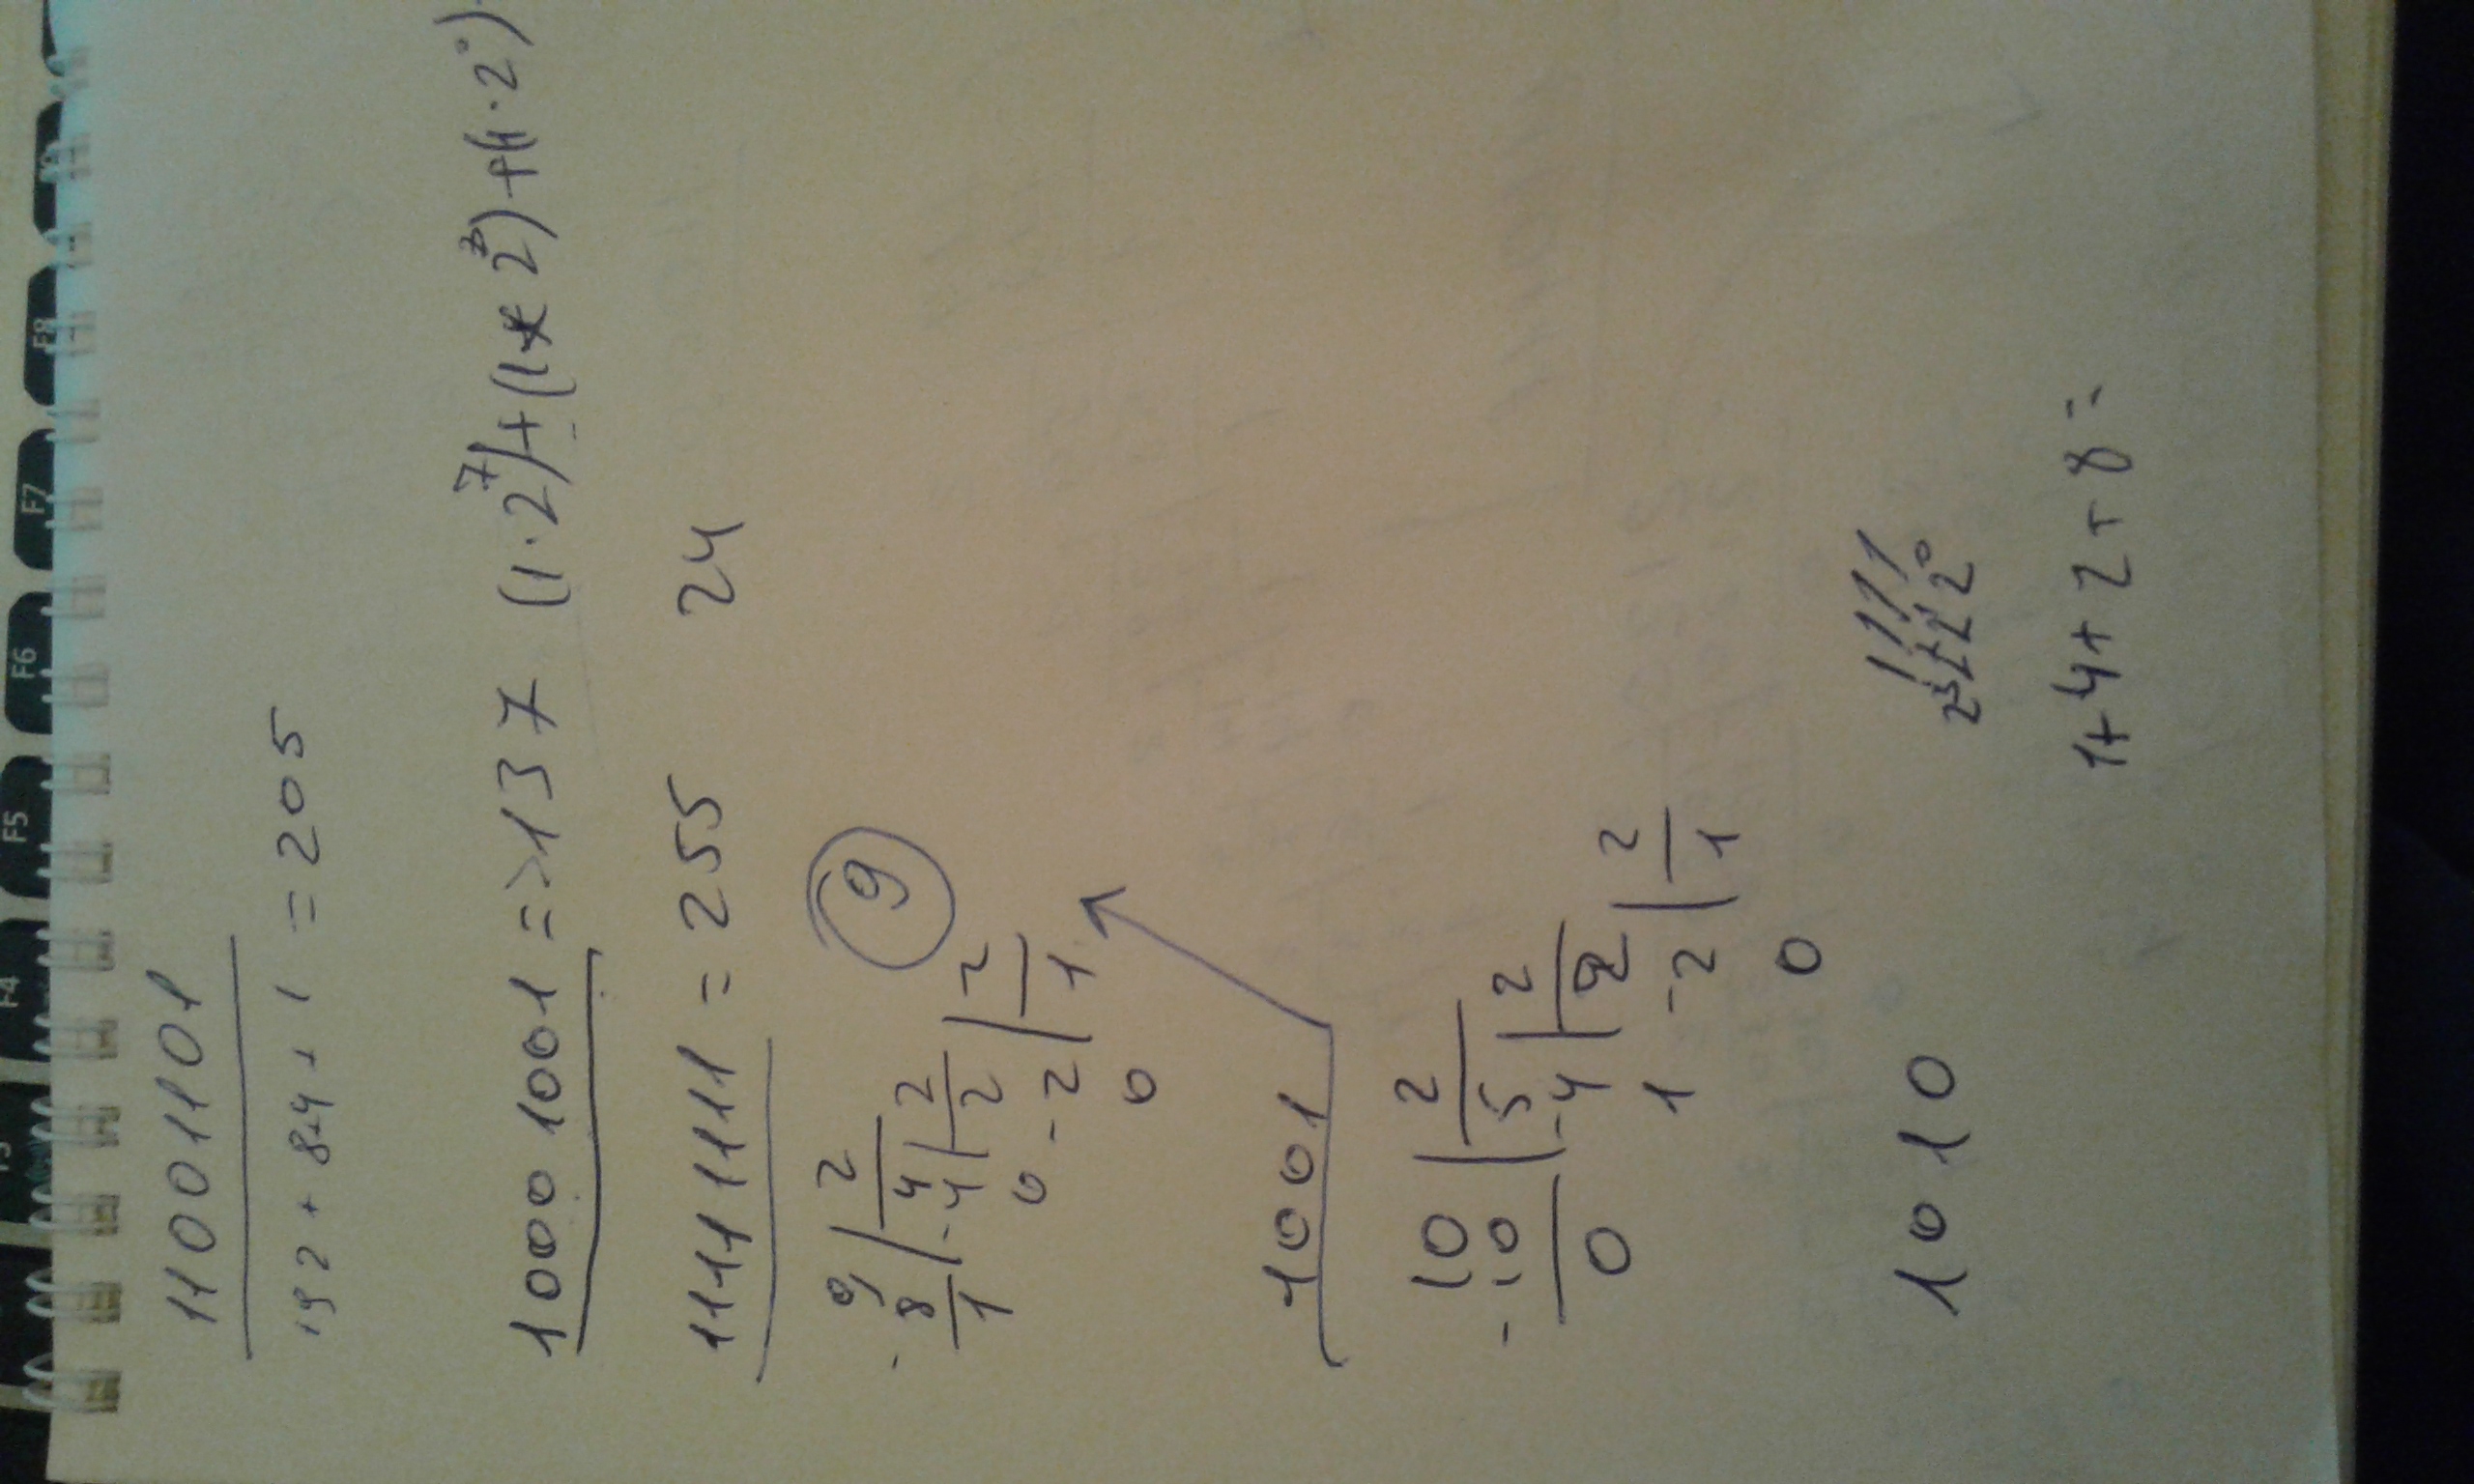 11001101
192 + 8+4 + 1 = 205
1000 1001 => 137 (1·2⁷)+(1*2³)+(1·2⁰)
1111 1111 = 255 24
9 | 2
- 8 | 4 | 2
1 - 4 | 2 | 2
0 - 2 | 1
0
9
1001
10 | 2
- 10 | 5 | 2
0 - 4 | 2 | 2
1 - 2 | 1
0
1010
1111
2³ 2² 2¹ 2⁰
1+4+2+8=
F4
F5
F6
F7
F8